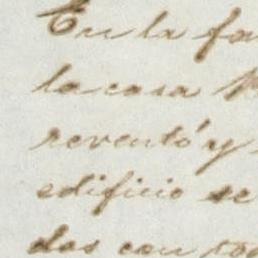 En la fa
la casa
reventó y
edificio se
dos con to